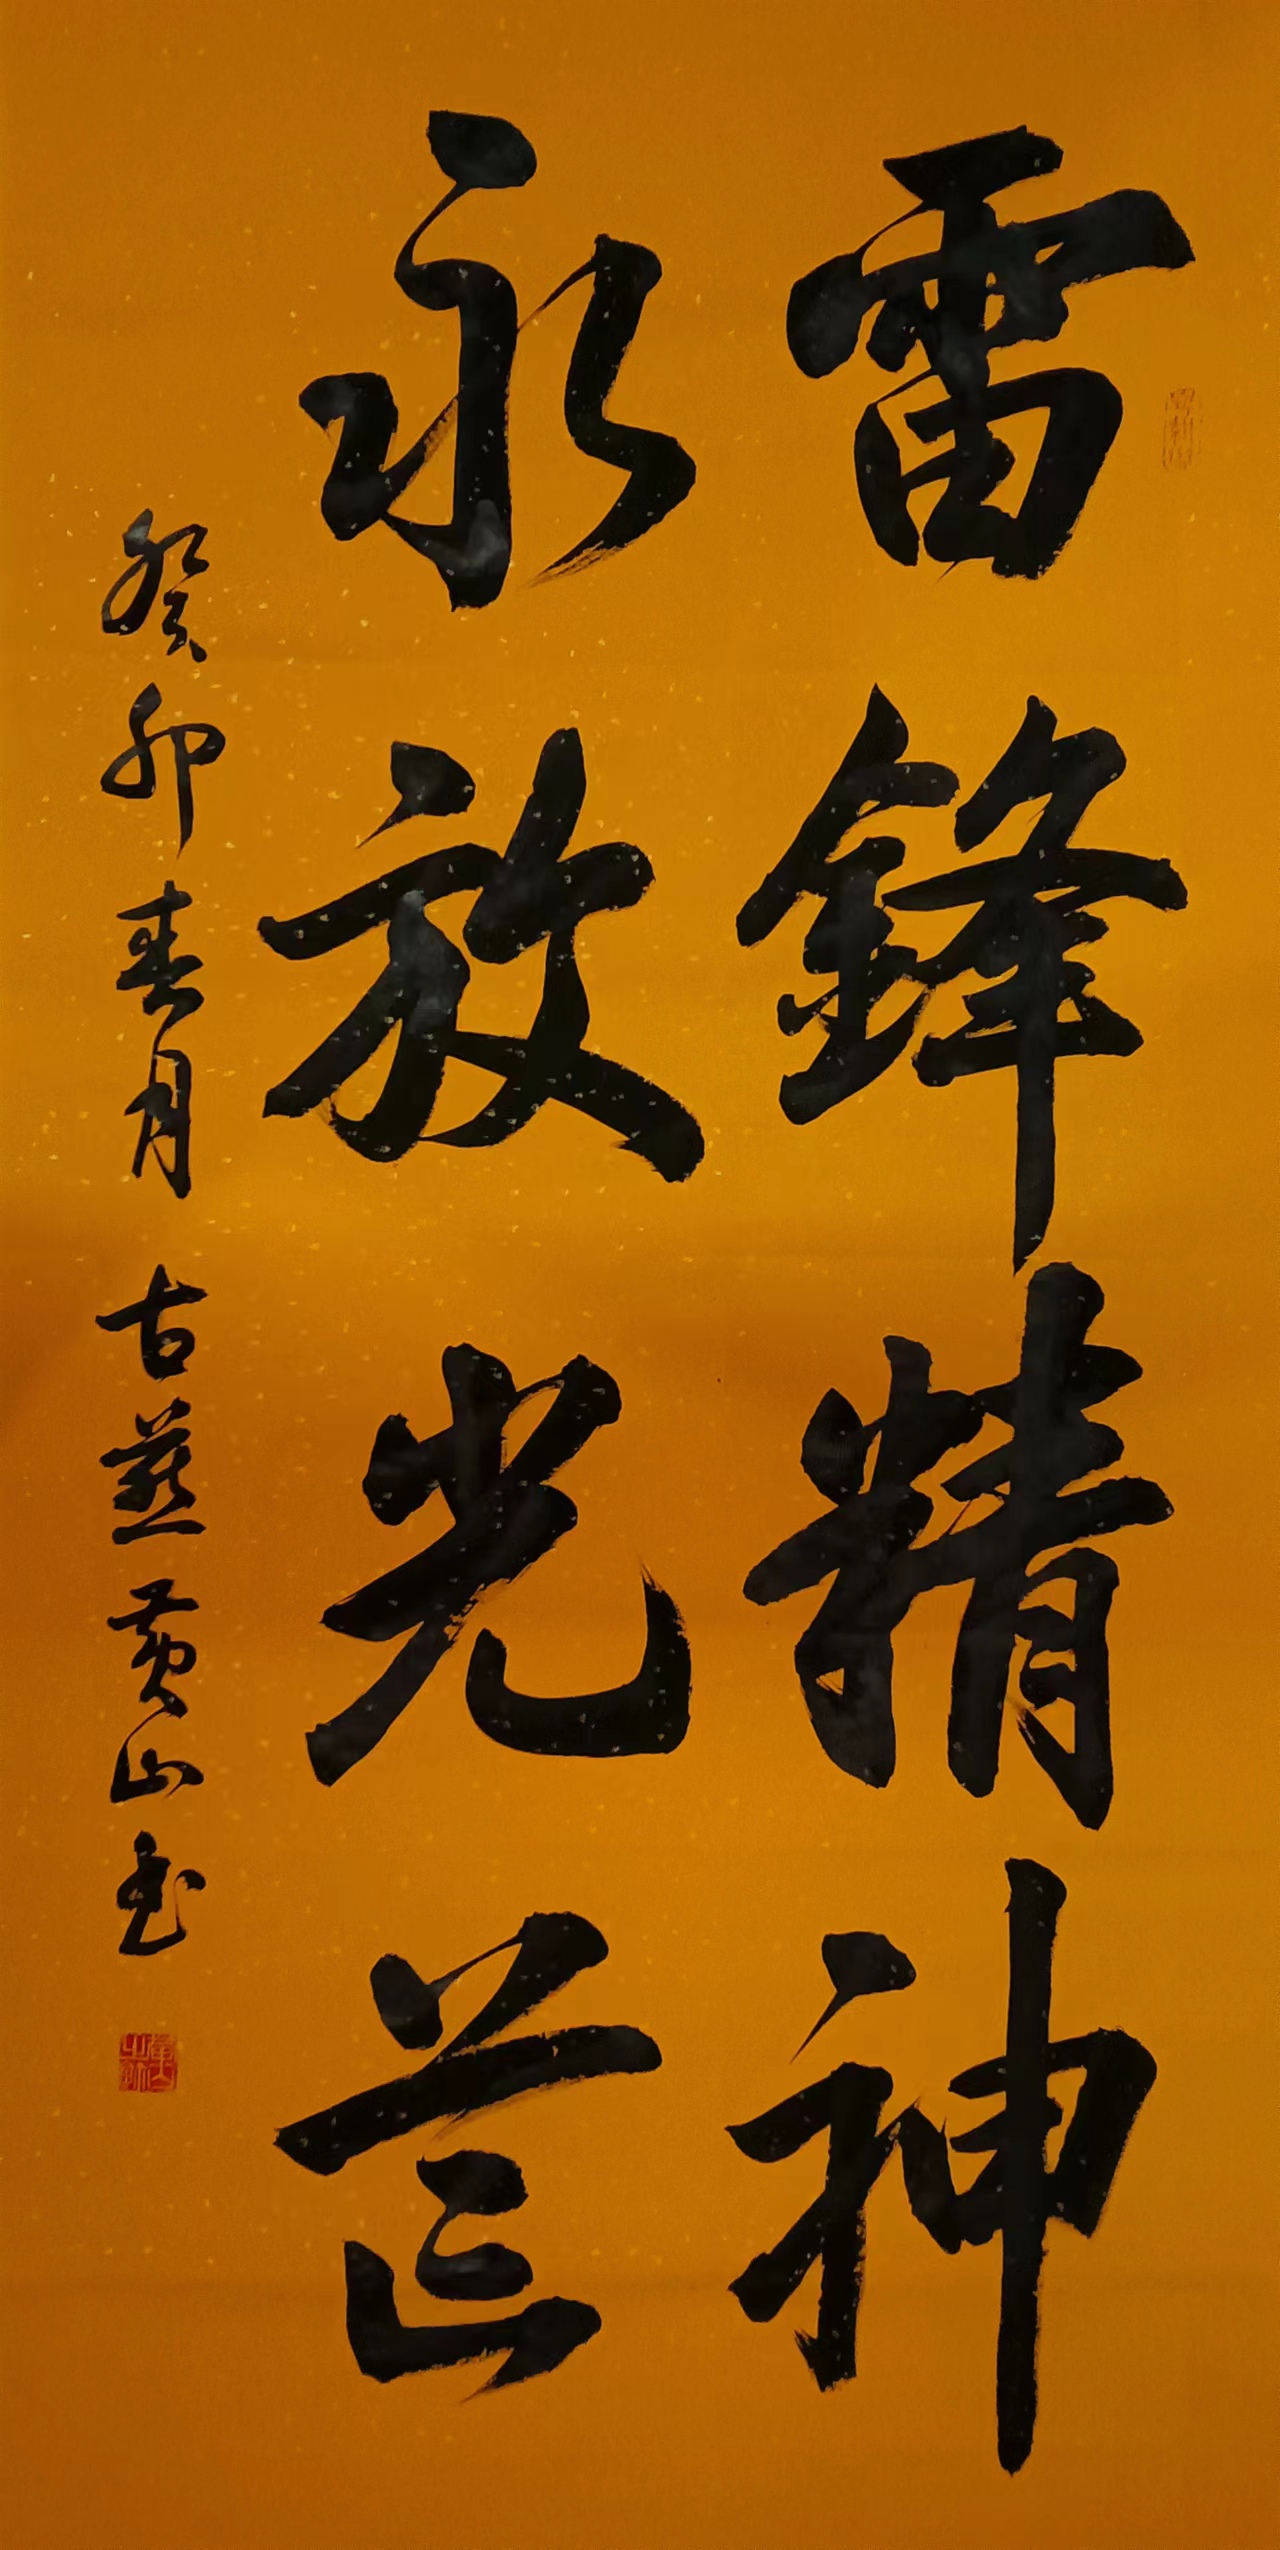 雷鋒精神
永放光芒
癸卯春月 古燕黄山书